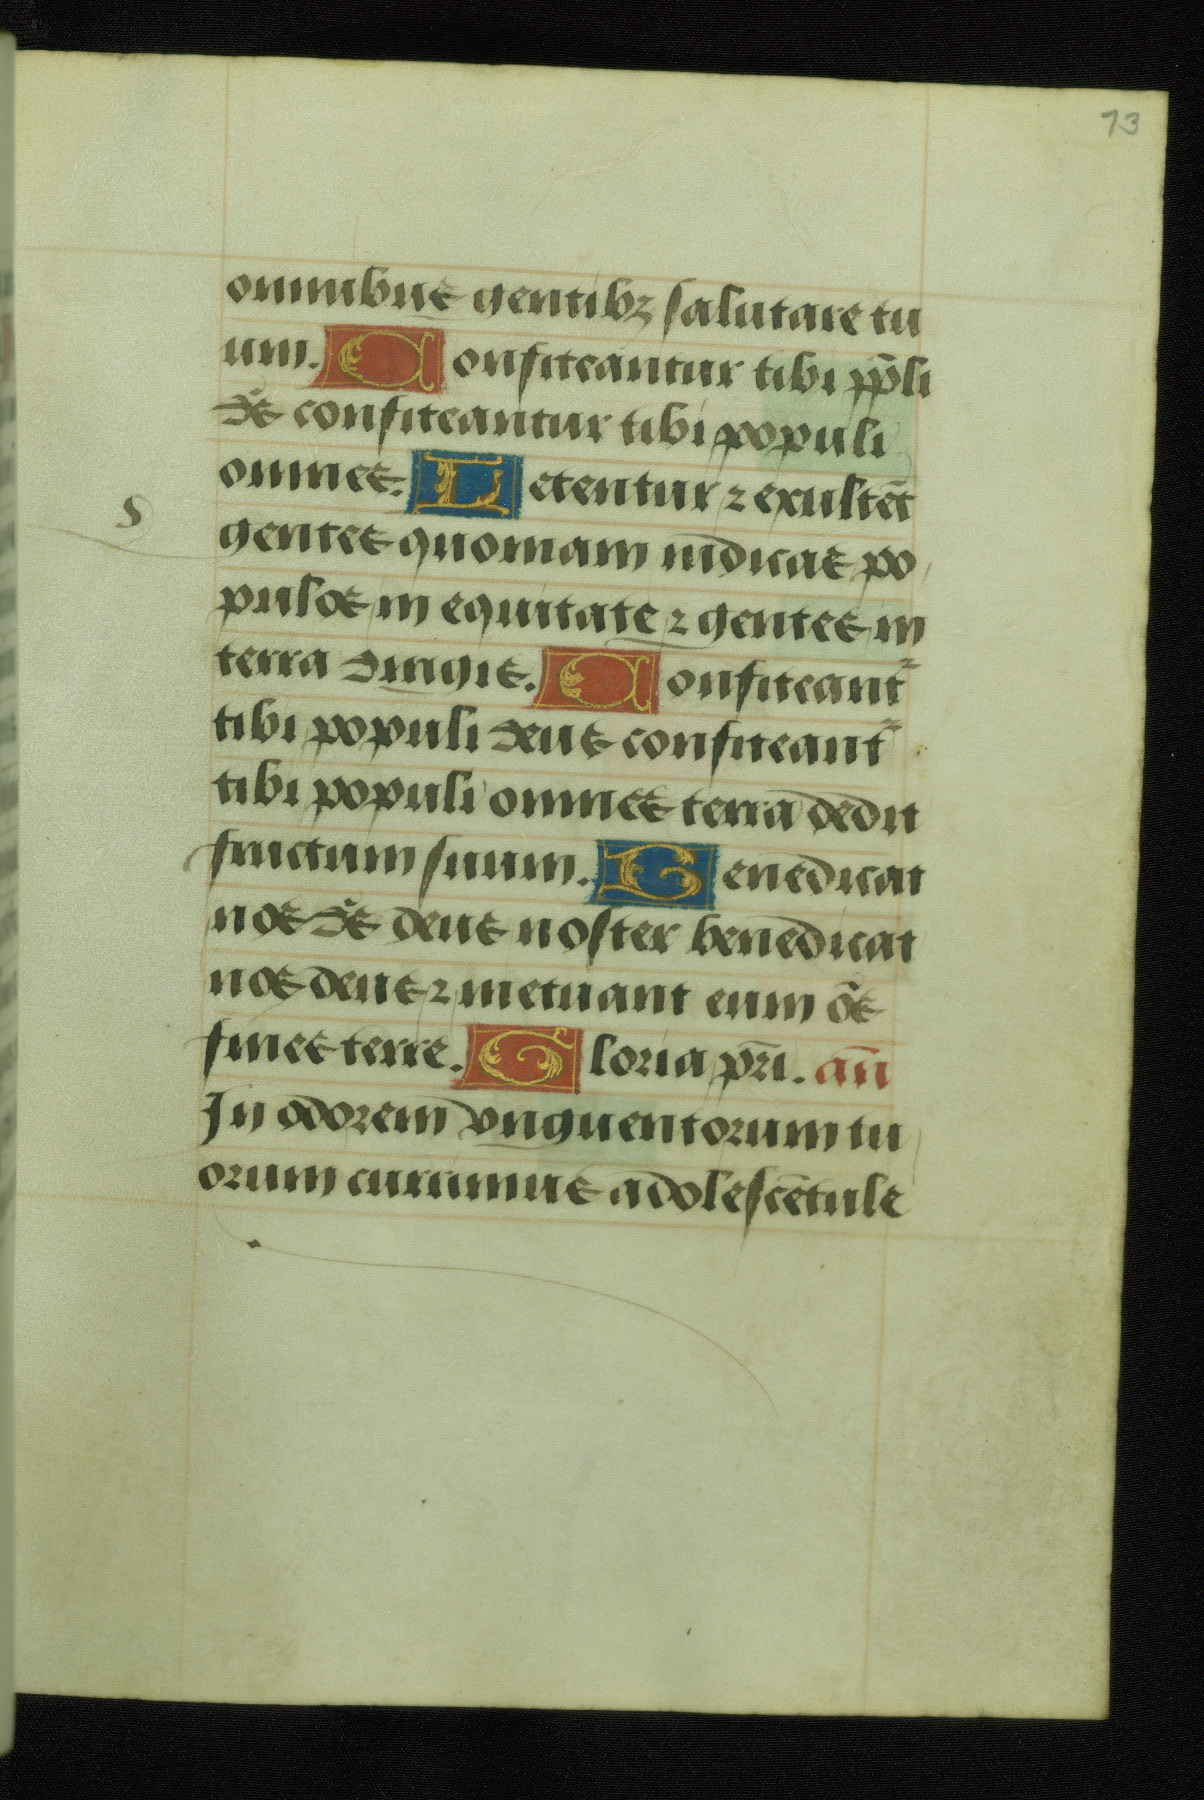 73
omnibus gentibꝫ salutare tu
um. Confiteantur tibi pp̄li
de᷒ confiteantur tibi populi
omnes. Letentur ⁊ exultēt
gentes quoniam iudicas po
S
pulos in equitate ⁊ gentes in
terra dirigis. Confiteant᷑
tibi populi deus confiteant᷑
tibi populi omnes terra dedit
fructum suum. Benedicat
nos de᷒ deus noster benedicat
nos deus ⁊ metuant eum oēs
fines terre. Gloria pr̄i. an̄
In odorem vnguentorum tu
orum currimus adolescētule